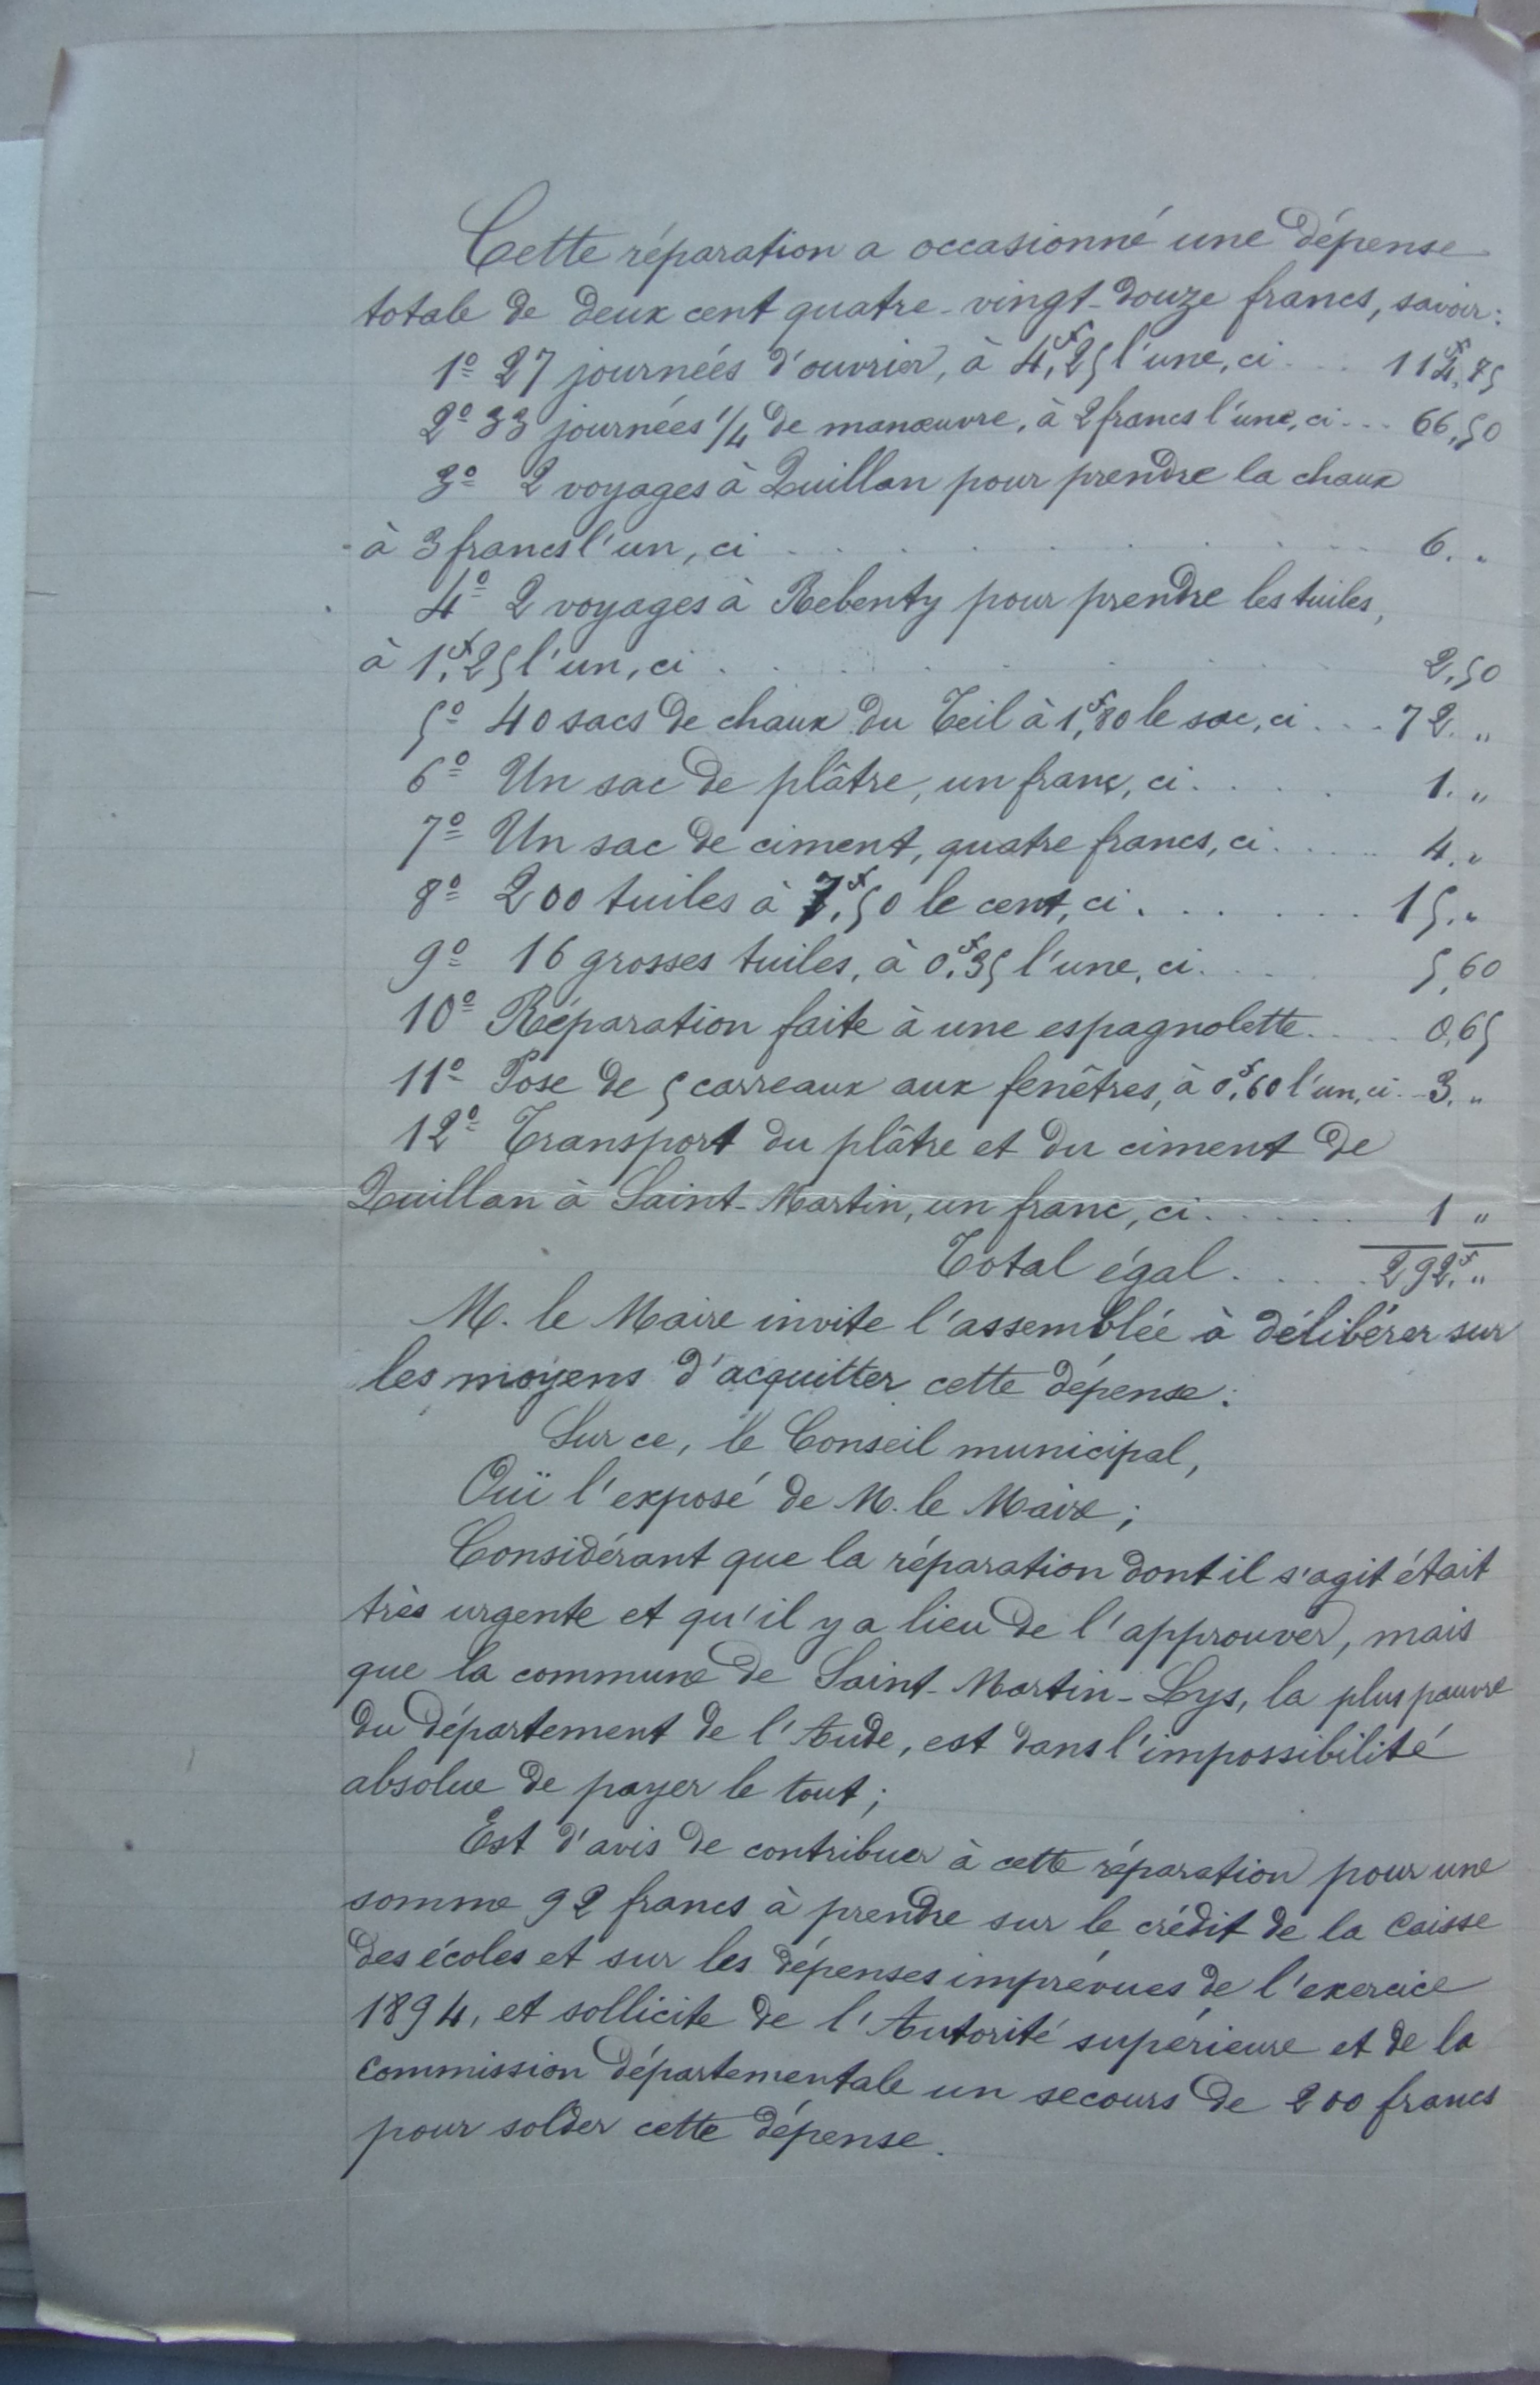 Cette réparation a occasionné une dépense
totale de deux cent quatre-vingt-douze francs, savoir:
1º 27 journées d'ouvrier, à 4,f25 l'une, ci.... 114,f75
2º 33 journées 1/4 de manœuvre, à 2 francs l'une, ci... 66,50
3º 2 voyages à Quillan pour prendre la chaux
à 3 francs l'un, ci.......... 6. "
4º 2 voyages à Rebenty pour prendre les tuiles,
à 1,f25 l'un, ci.......... 2,50
5º 40 sacs de chaux du Teil à 1,f80 le sac, ci.... 72. "
6º Un sac de plâtre, un franc, ci..... 1. "
7º Un sac de ciment, quatre francs, ci..... 4. "
8º 200 tuiles à 7,f50 le cent, ci....... 15. "
9º 16 grosses tuiles, à 0,f35 l'une, ci.... 5,60
10º Réparation faite à une espagnolette..... 0,65
11º Pose de 5 carreaux aux fenêtres, à 0,f60 l'un, ci... 3. "
12º Transport du plâtre et du ciment de
Quillan à Saint-Martin, un franc, ci...... 1 "
Total égal..... 292,f "
M. le Maire invite l'assemblée à délibérer sur
les moyens d'acquitter cette dépense:
Sur ce, le Conseil municipal,
Ouï l'exposé de M. le Maire;
Considérant que la réparation dont il s'agit était
très urgente et qu'il y a lieu de l'approuver, mais
que la commune de Saint-Martin-Lys, la plus pauvre
du département de l'Aude, est dans l'impossibilité
absolue de payer le tout;
Est d'avis de contribuer à cette réparation pour une
somme 92 francs à prendre sur le crédit de la Caisse
des écoles et sur les dépenses imprévues de l'exercice
1894, et sollicite de l'Autorité supérieure et de la
commission départementale un secours de 200 francs
pour solder cette dépense.